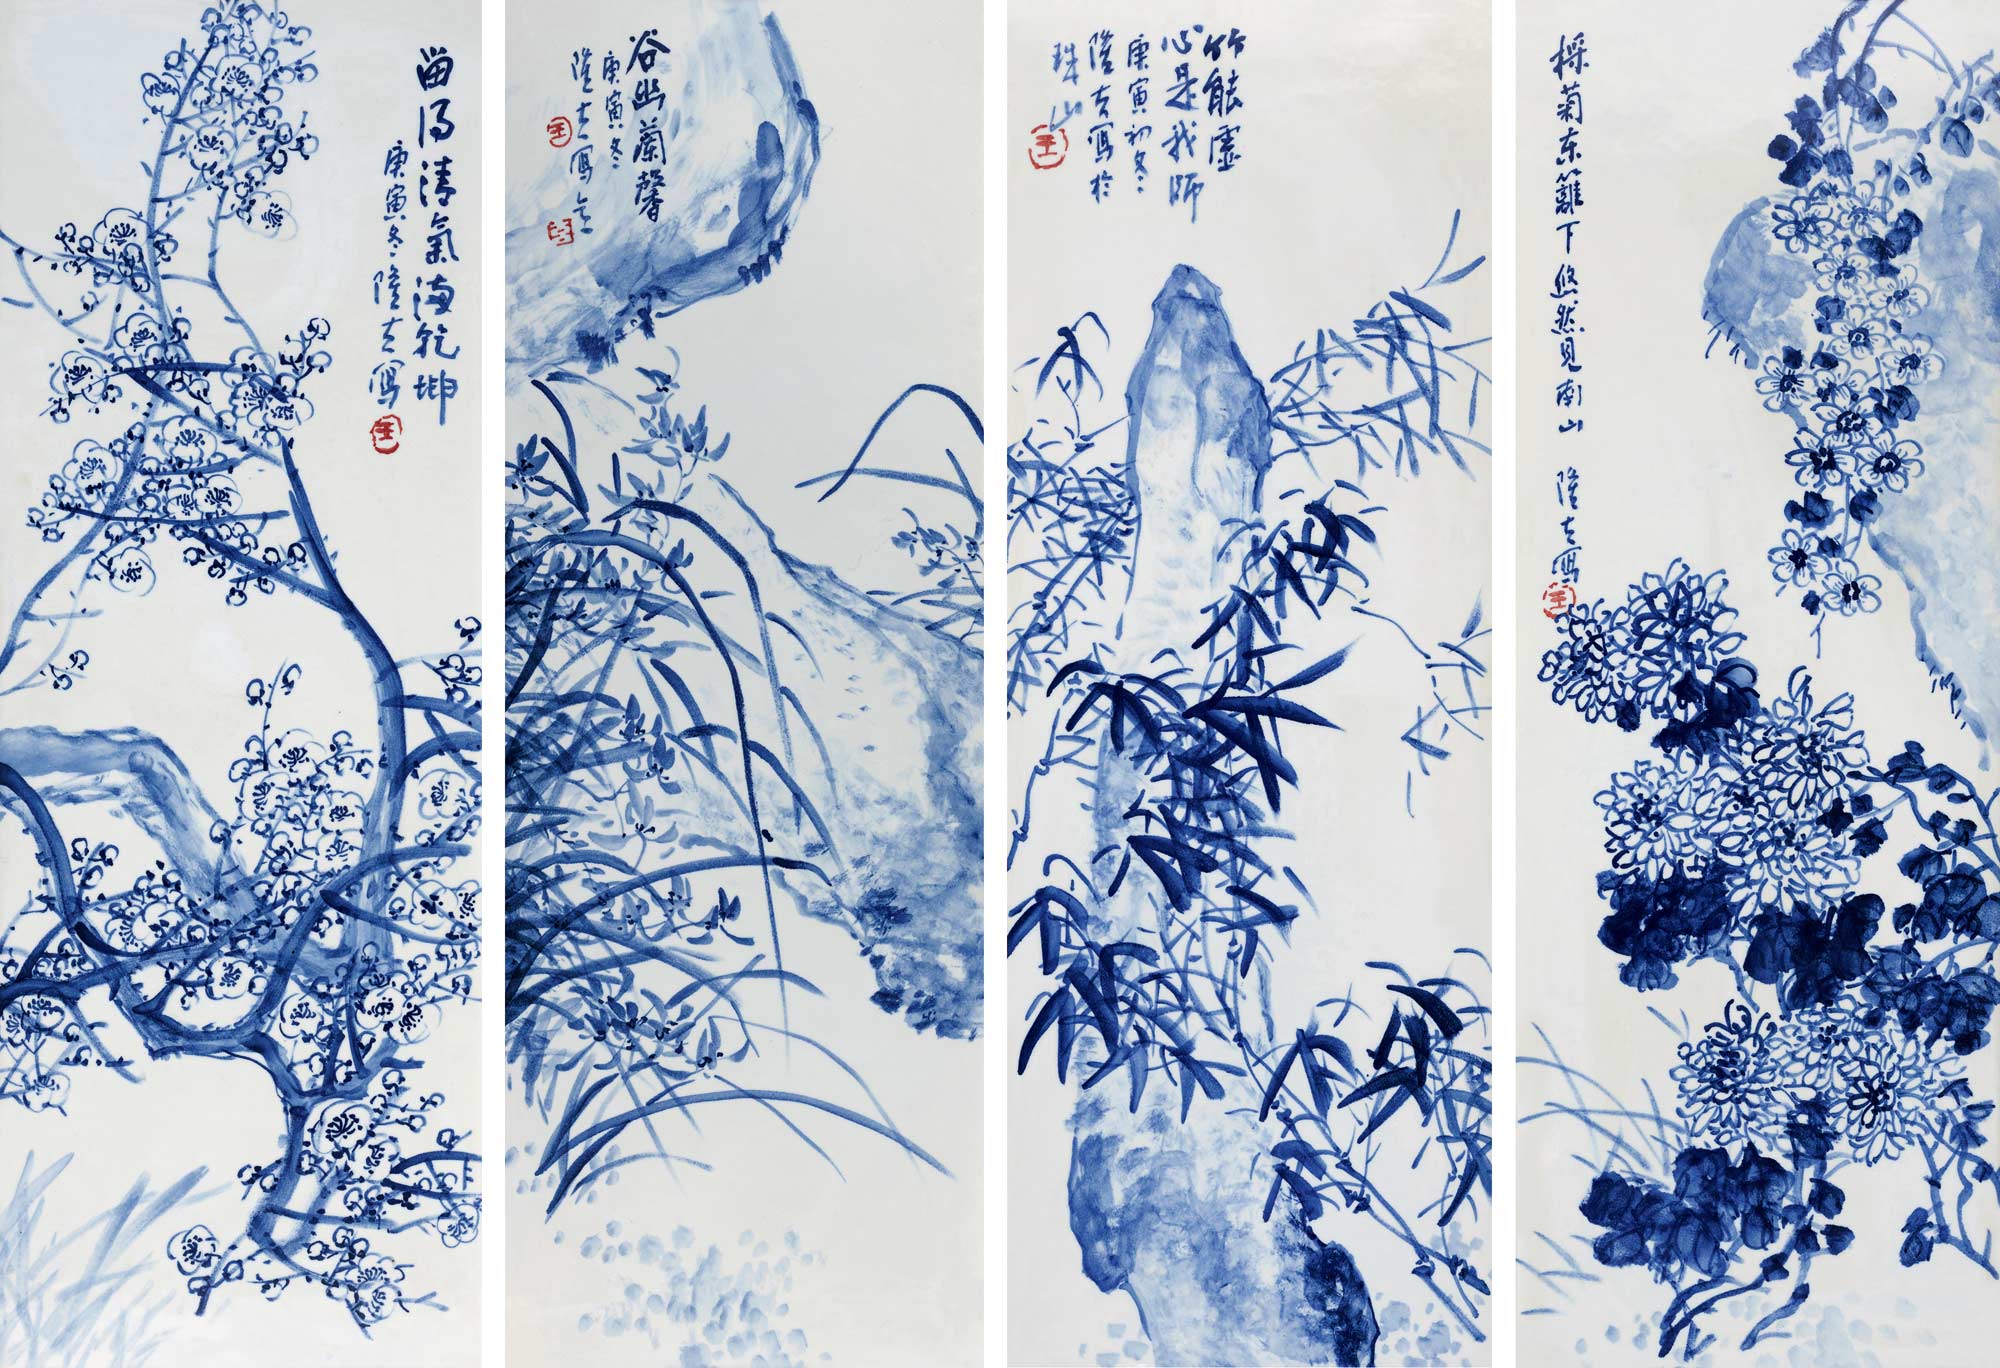 留得清氣滿乾坤
庚寅冬隆夫寫
王
谷幽蘭馨
庚寅冬
隆夫寫
王
竹能虛
心是我師
庚寅初冬
隆夫寫於
珠山
王
採菊东籬下悠然見南山 隆夫寫
王